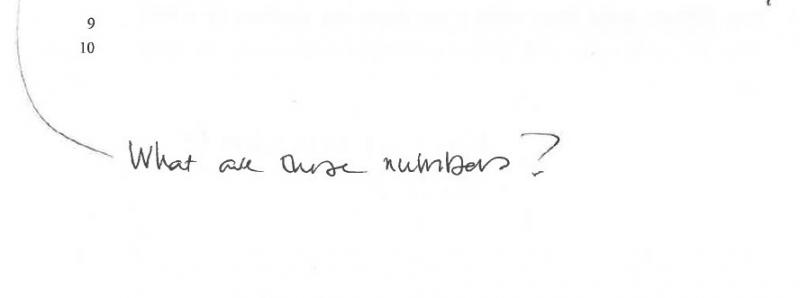 9
10
What are these numbers?